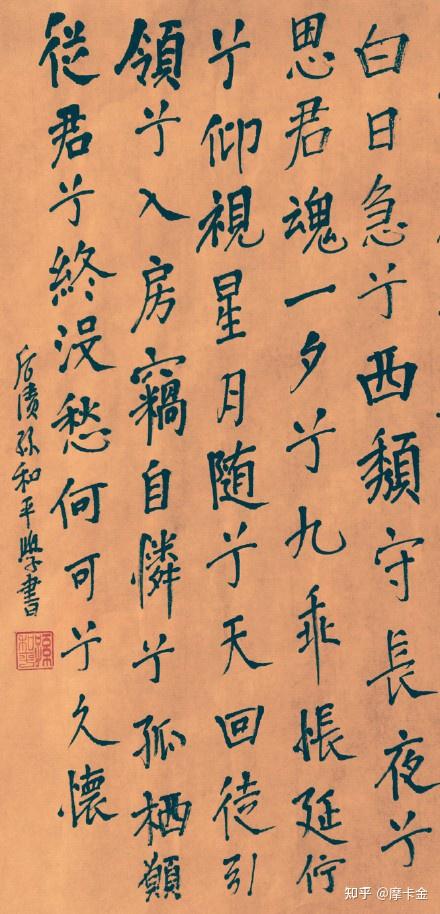 白日急兮西頹守長夜兮
思君魂一夕兮九乖悵延佇
兮仰視星月隨兮天回徒引
領兮入房竊自憐兮孤栖願
從君兮終沒愁何可兮久懷
孙和平學書
知乎 @摩卡金